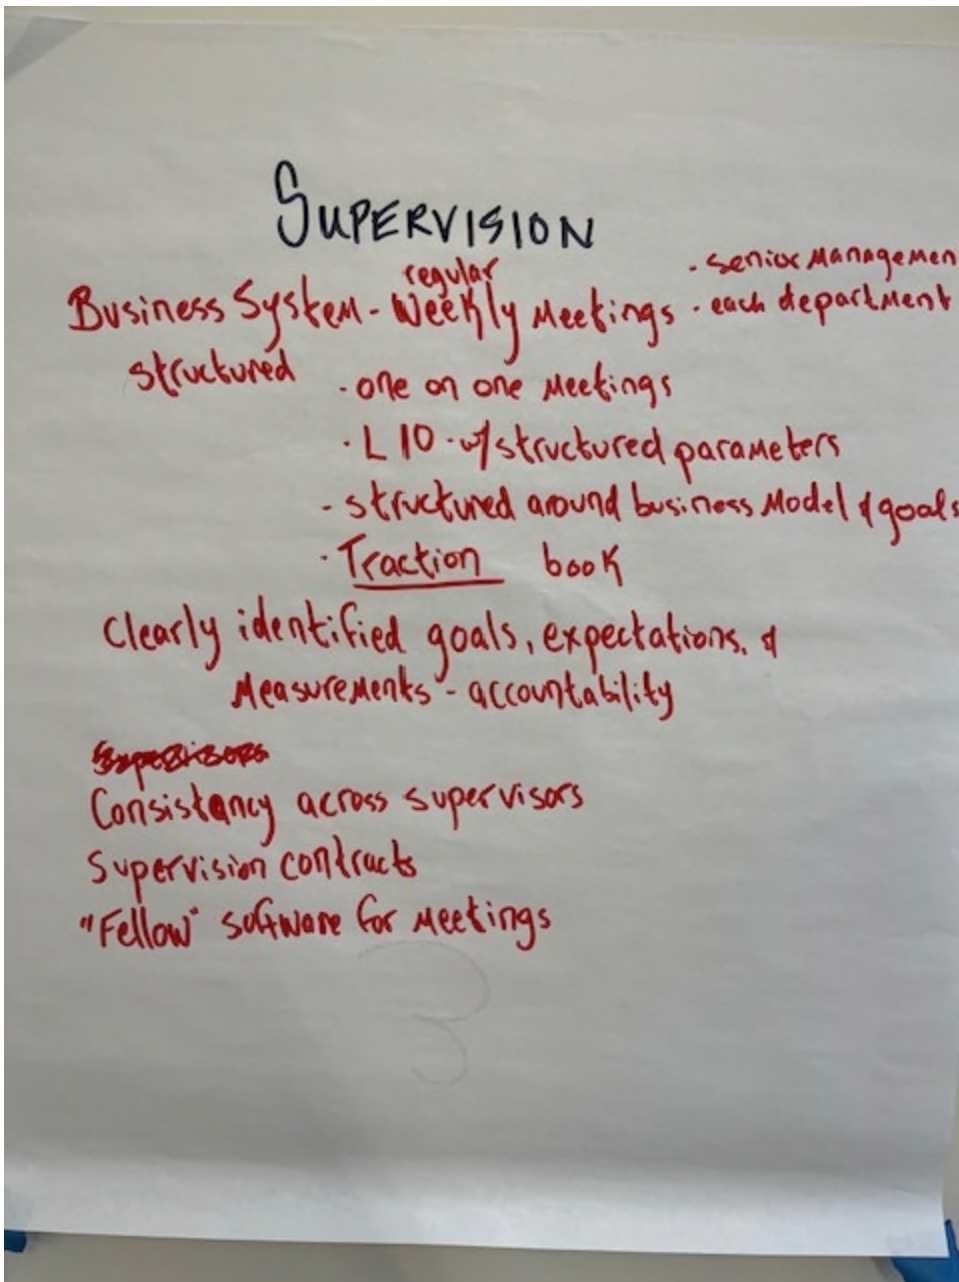 SUPERVISION
regular
· senior Managemen
Business System - Weekly Meetings · each department
structured
· one on one Meetings
· L 10 · w/ structured parameters
- structured around business Model & goals
· Traction book
Clearly identified goals, expectations, &
Measurements - accountability
Consistancy across supervisors
Supervision contracts
"Fellow" software for Meetings
3